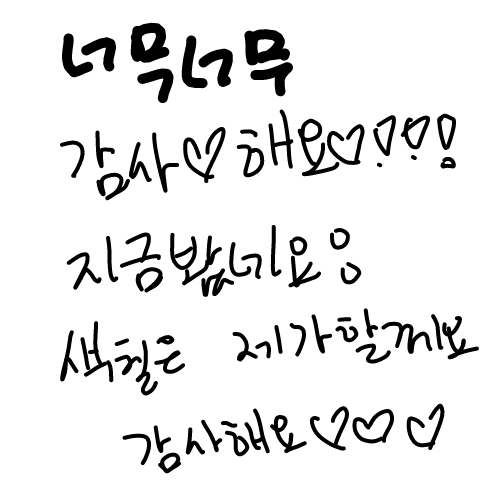 너무너무
감사♡해요♡!!!
지금밨네요ㅇ
색칠은 제가할께요
감사해요♡♡♡